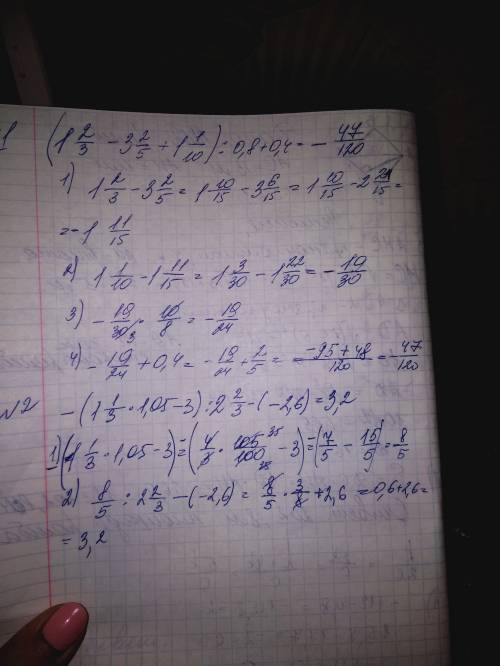 1 (1 2/3 − 3 2/5 + 1 1/10) : 0,8 + 0,4 = − 47/120
1) 1 2/3 − 3 2/5 = 1 10/15 − 3 6/15 = 1 10/15 − 2 21/15 =
= −1 11/15
2) 1 1/10 − 1 11/15 = 1 3/30 − 1 22/30 = − 19/30
3) − 19/30 · 10/8 = − 19/24
4) − 19/24 + 0,4 = − 19/24 + 2/5 = −95 + 48/120 = − 47/120
№2 −(1 1/3 · 1,05 − 3) : 2 2/3 − (−2,6) = 3,2
1) −(1 1/3 · 1,05 − 3) = −(4/3 · 105/100 − 3) = −(7/5 − 15/5) = 8/5
2) 8/5 : 2 2/3 − (−2,6) = 8/5 · 3/8 + 2,6 = 0,6 + 2,6 =
= 3,2